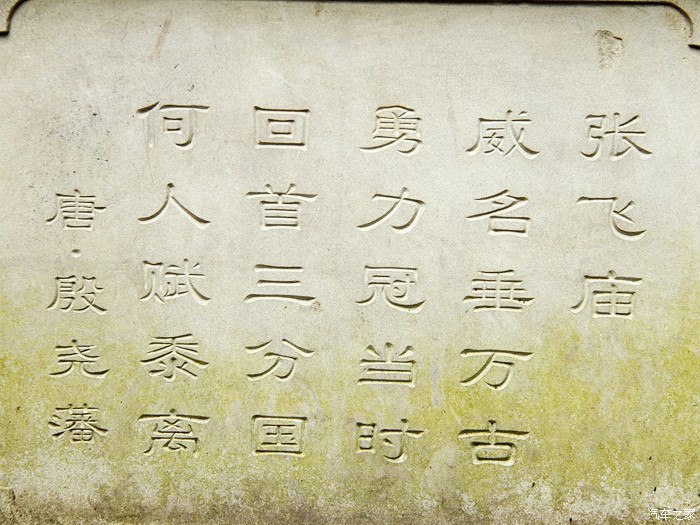 张飞庙
威名垂万古
勇力冠当时
回首三分国
何人赋黍离
唐·殷尧藩
汽车之家